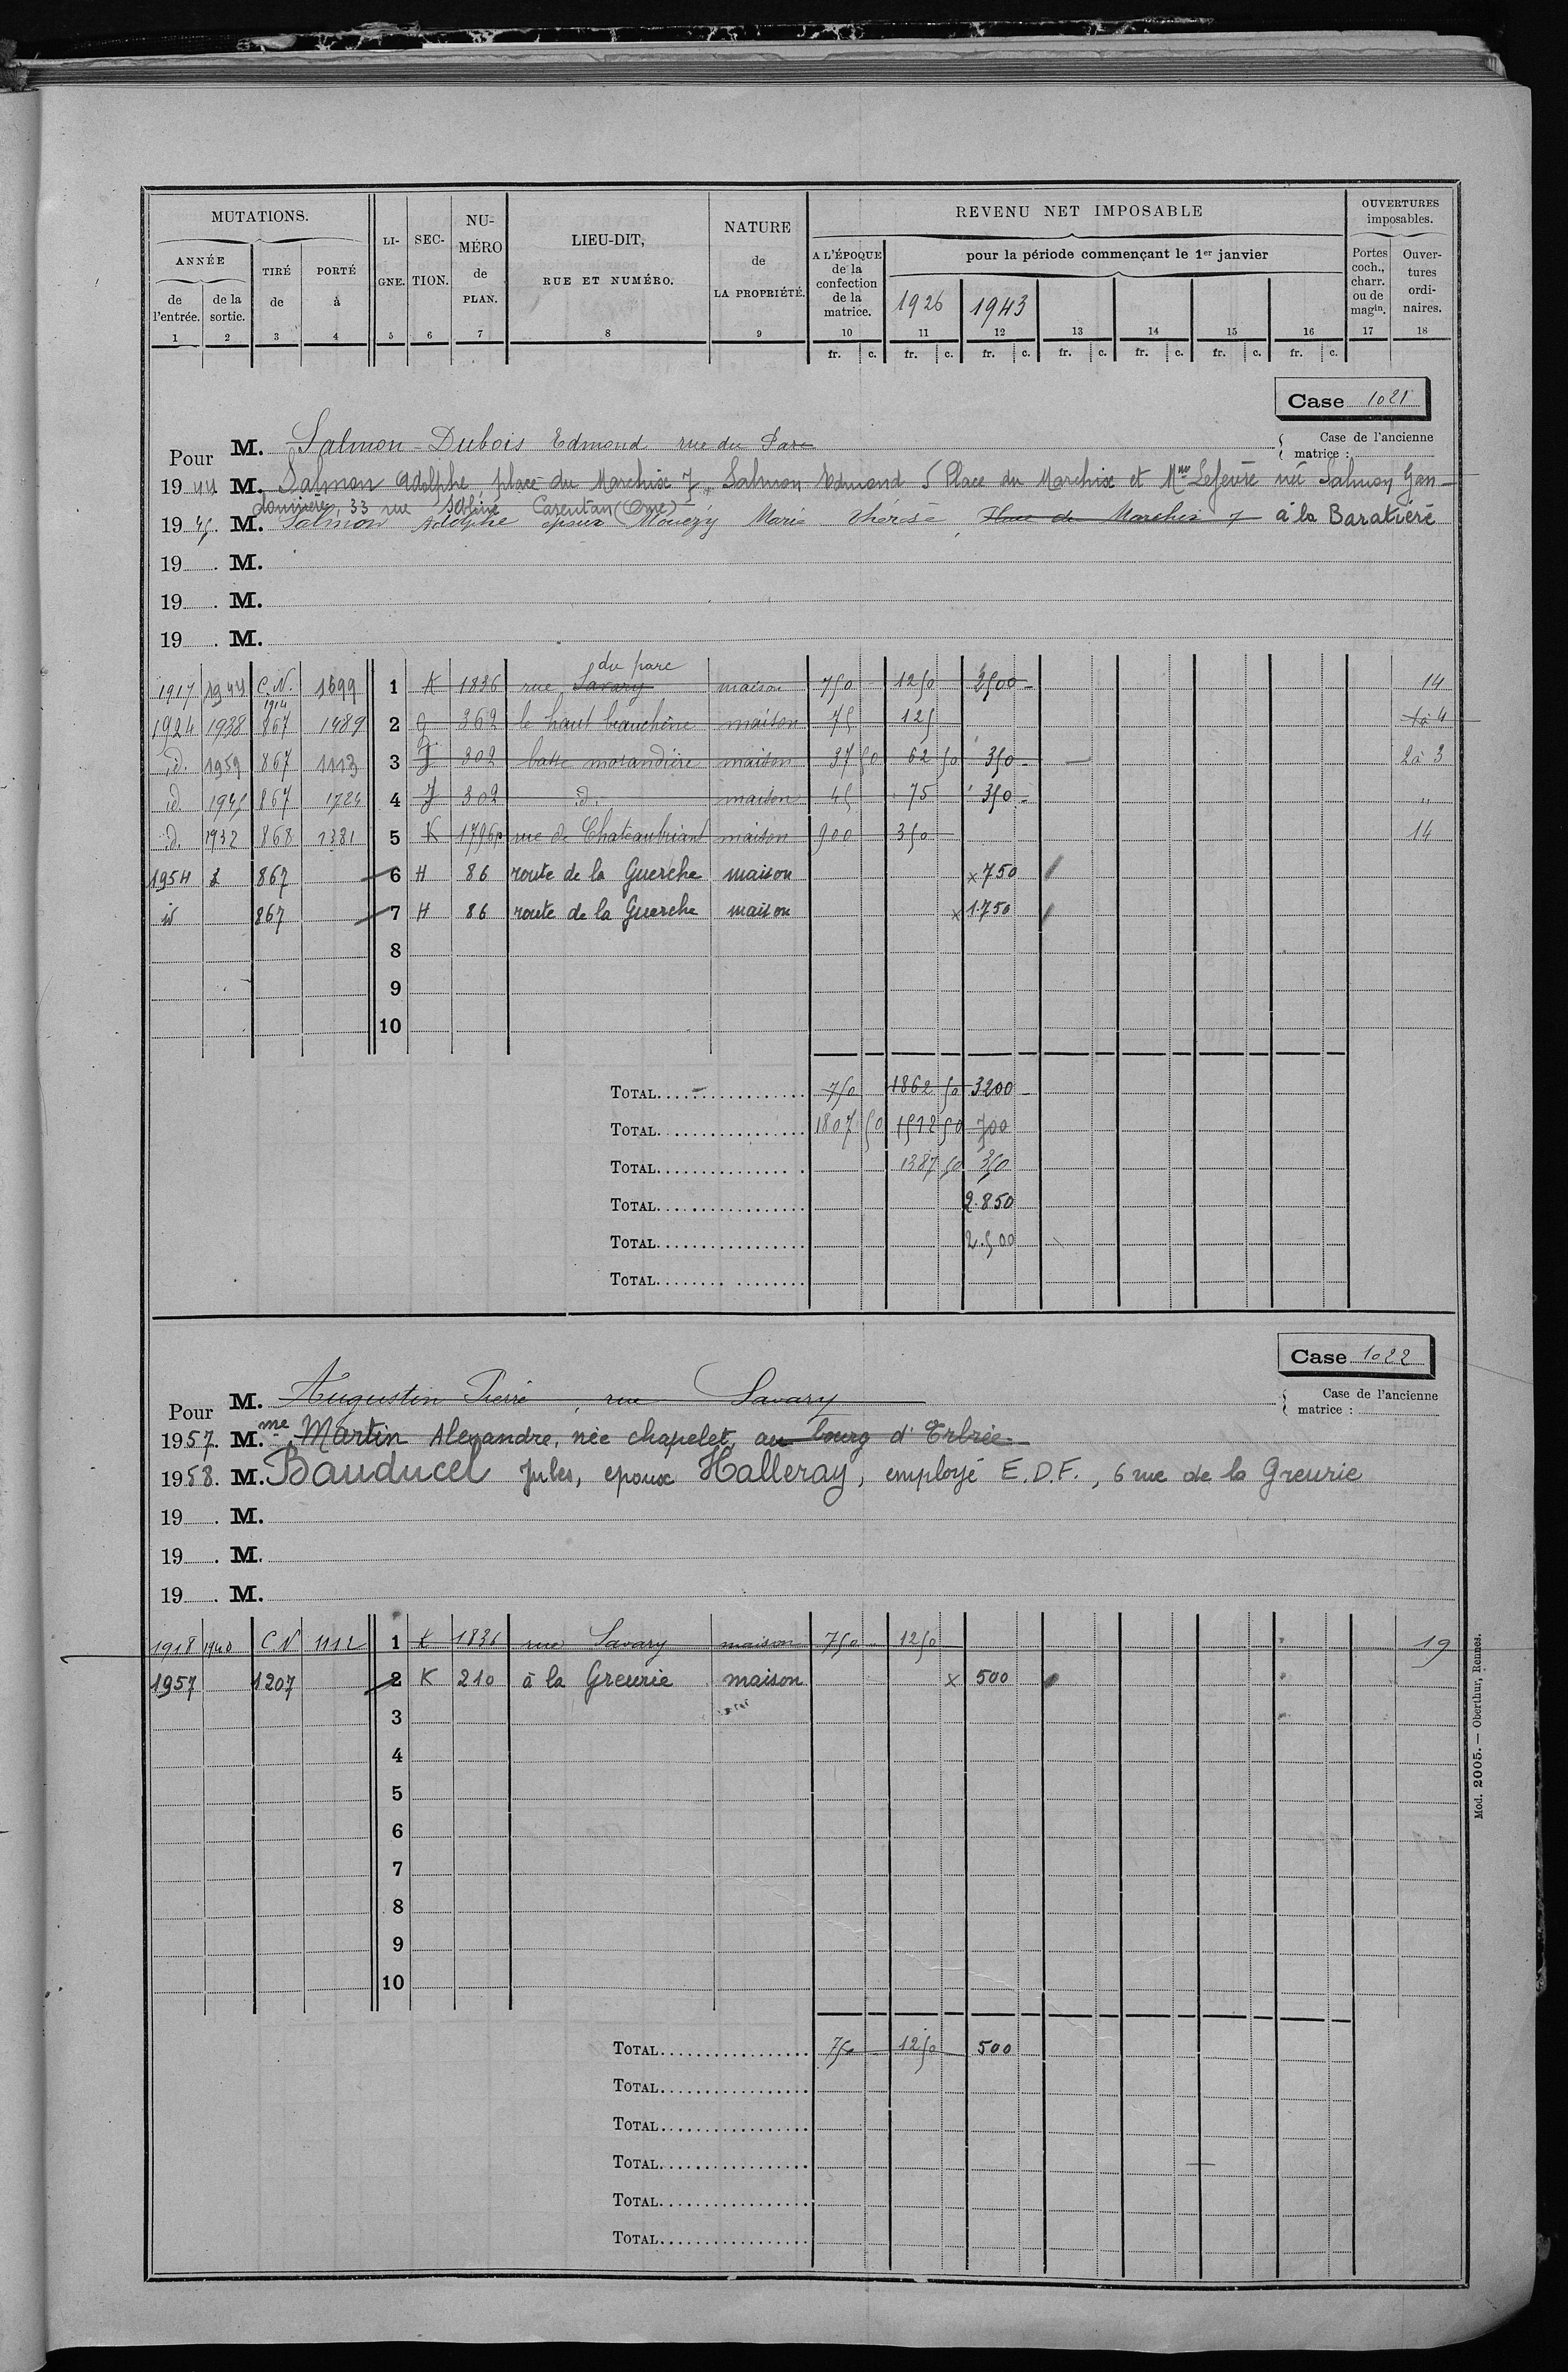 MUTATIONS. LI-GNE. SEC-TION. NU-MÉRO de PLAN. LIEU-DIT, RUE ET NUMÉRO. NATURE de LA PROPRIÉTÉ. REVENU NET IMPOSABLE OUVERTURES imposables.
ANNÉE TIRÉ de PORTÉ à A L'ÉPOQUE de la confection de la matrice. pour la période commençant le 1er janvier Portes coch., charr. ou de magin. Ouver-tures ordi-naires.
de l'entrée. de la sortie. 1926 1943
1 2 3 4 5 6 7 8 9 10 11 12 13 14 15 16 17 18
fr. c. fr. c. fr. c. fr. c. fr. c. fr. c. fr. c.
Case 1021
Pour M. Salmon-Dubois Edmond rue du Parc
Case de l'ancienne matrice :
1944 M. Salmon Adolphe, place du Marchix 7, Salmon Edmond 5 Place du Marchix et Mme Lefeuvre née Salmon Gen-
33 rue Carentan
1945 M. Salmon Adolphe époux Mouézy Marie Thérèse, Place du Marchix 7 à la Baratière
19 . M.
19 . M.
19 . M.
du parc
1917 1944 C.N. 1699 1 K 1836 rue Savary maison 750 1250 2500 14
1914
1924 1938 867 1489 2 g 362 le haut beauchêne maison 75 125 1à 4
id. 1959 867 1113 3 J 302 basse morandière maison 37 50 62 50 350 2à 3
id 1945 867 1724 4 J 302 id. maison 45 75 350 "
id. 1932 868 1381 5 K 1796p rue de Chateaubriant maison 900 350 14
1954 867 6 H 86 route de la Guerche maison x 750
id 867 7 H 86 route de la Guerche maison x 1.750
8
9
10
TOTAL 750 1862 50 3200
TOTAL 1807 50 1512 50 700
TOTAL 1387 50 350
TOTAL 2.850
TOTAL 2.500
TOTAL
Case 1022
Pour M. Augustin Pierre, rue Savary
Case de l'ancienne matrice :
1957. M.me Martin Alexandre, née chapelet, au bourg d'Erbrée
1958. M. Bauducel Jules, epoux Halleray, employé E.D.F., 6 rue de la Greurie
19 . M.
19 . M.
19 . M.
1918 1940 C N 1112 1 K 1836 rue Savary maison 750 1250 19
1957 1207 2 K 210 à la Greurie maison x 500
3
4
5
6
7
8
9
10
TOTAL 750 1250 500
TOTAL
TOTAL
TOTAL
TOTAL
TOTAL
Mod. 2005. — Oberthur, Rennes.